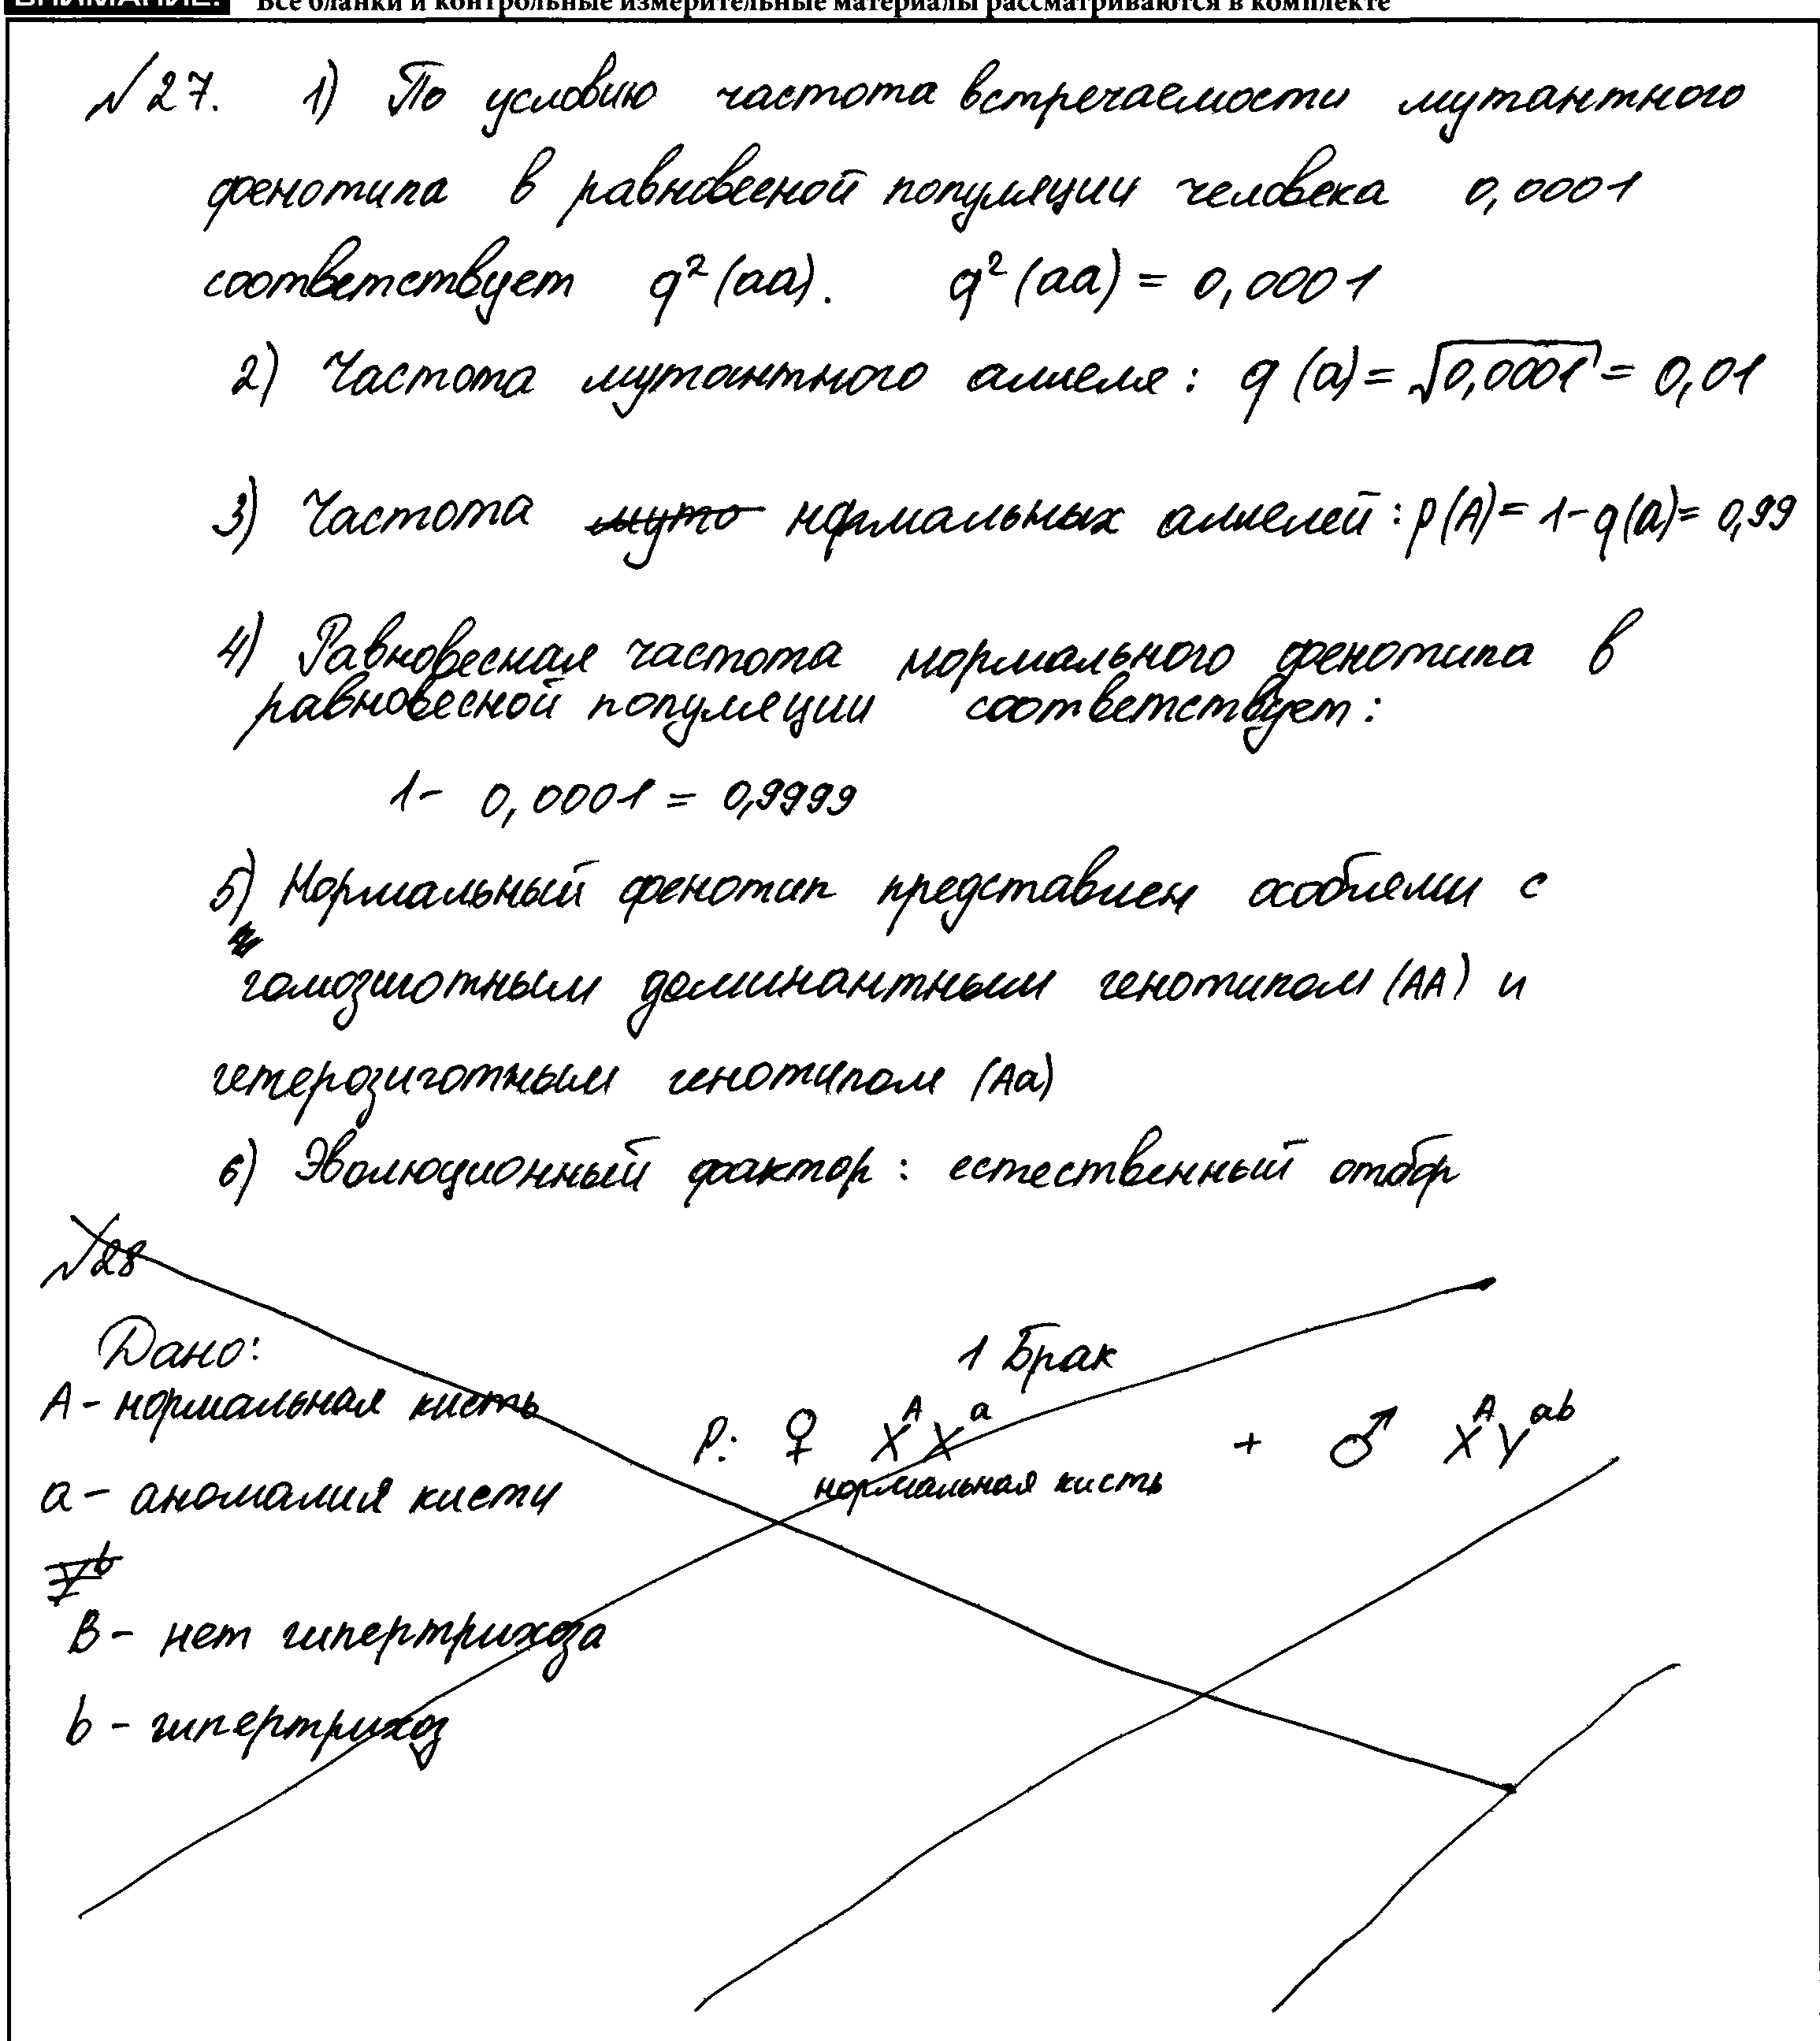 ВНИМАНИЕ! Все бланки и контрольные измерительные материалы рассматриваются в комплекте
№27. 1) По условию частота встречаемости мутантного
фенотипа в равновесной популяции человека 0,0001
соответствует q² (aa). q² (aa) = 0,0001
2) Частота мутантного аллеля: q (a) = √0,0001 = 0,01
3) Частота муто нормальных аллелей: p(A) = 1- q(a) = 0,99
4) Равновесная частота нормального фенотипа в
равновесной популяции соответствует:
1- 0,0001 = 0,9999
5) Нормальный фенотип представлен особями с
гомозиготным доминантным генотипом (AA) и
гетерозиготным генотипом (Aa)
6) Эволюционный фактор: естественный отбор
№28
Дано:
1 Брак
A - нормальная кисть
P: ♀ XᴬXᵃ + ♂ XᴬYᵃᵇ
нормальная кисть
a - аномалия кисти
Yᵇ
B - нет гипертрихоза
b - гипертрихоз